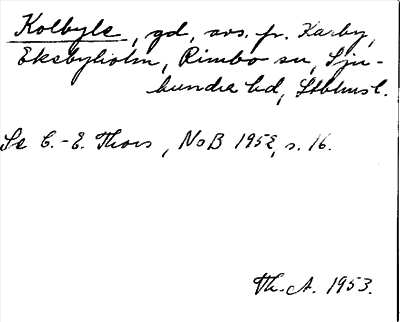 Kolbyle, gd, avs. fr. Karby,
Eksbyholm, Rimbo sn, Sju-
hundra hd, Sthlms l.
Se C.-E. Thors, NoB 1952, s. 16.
Th. A. 1953.